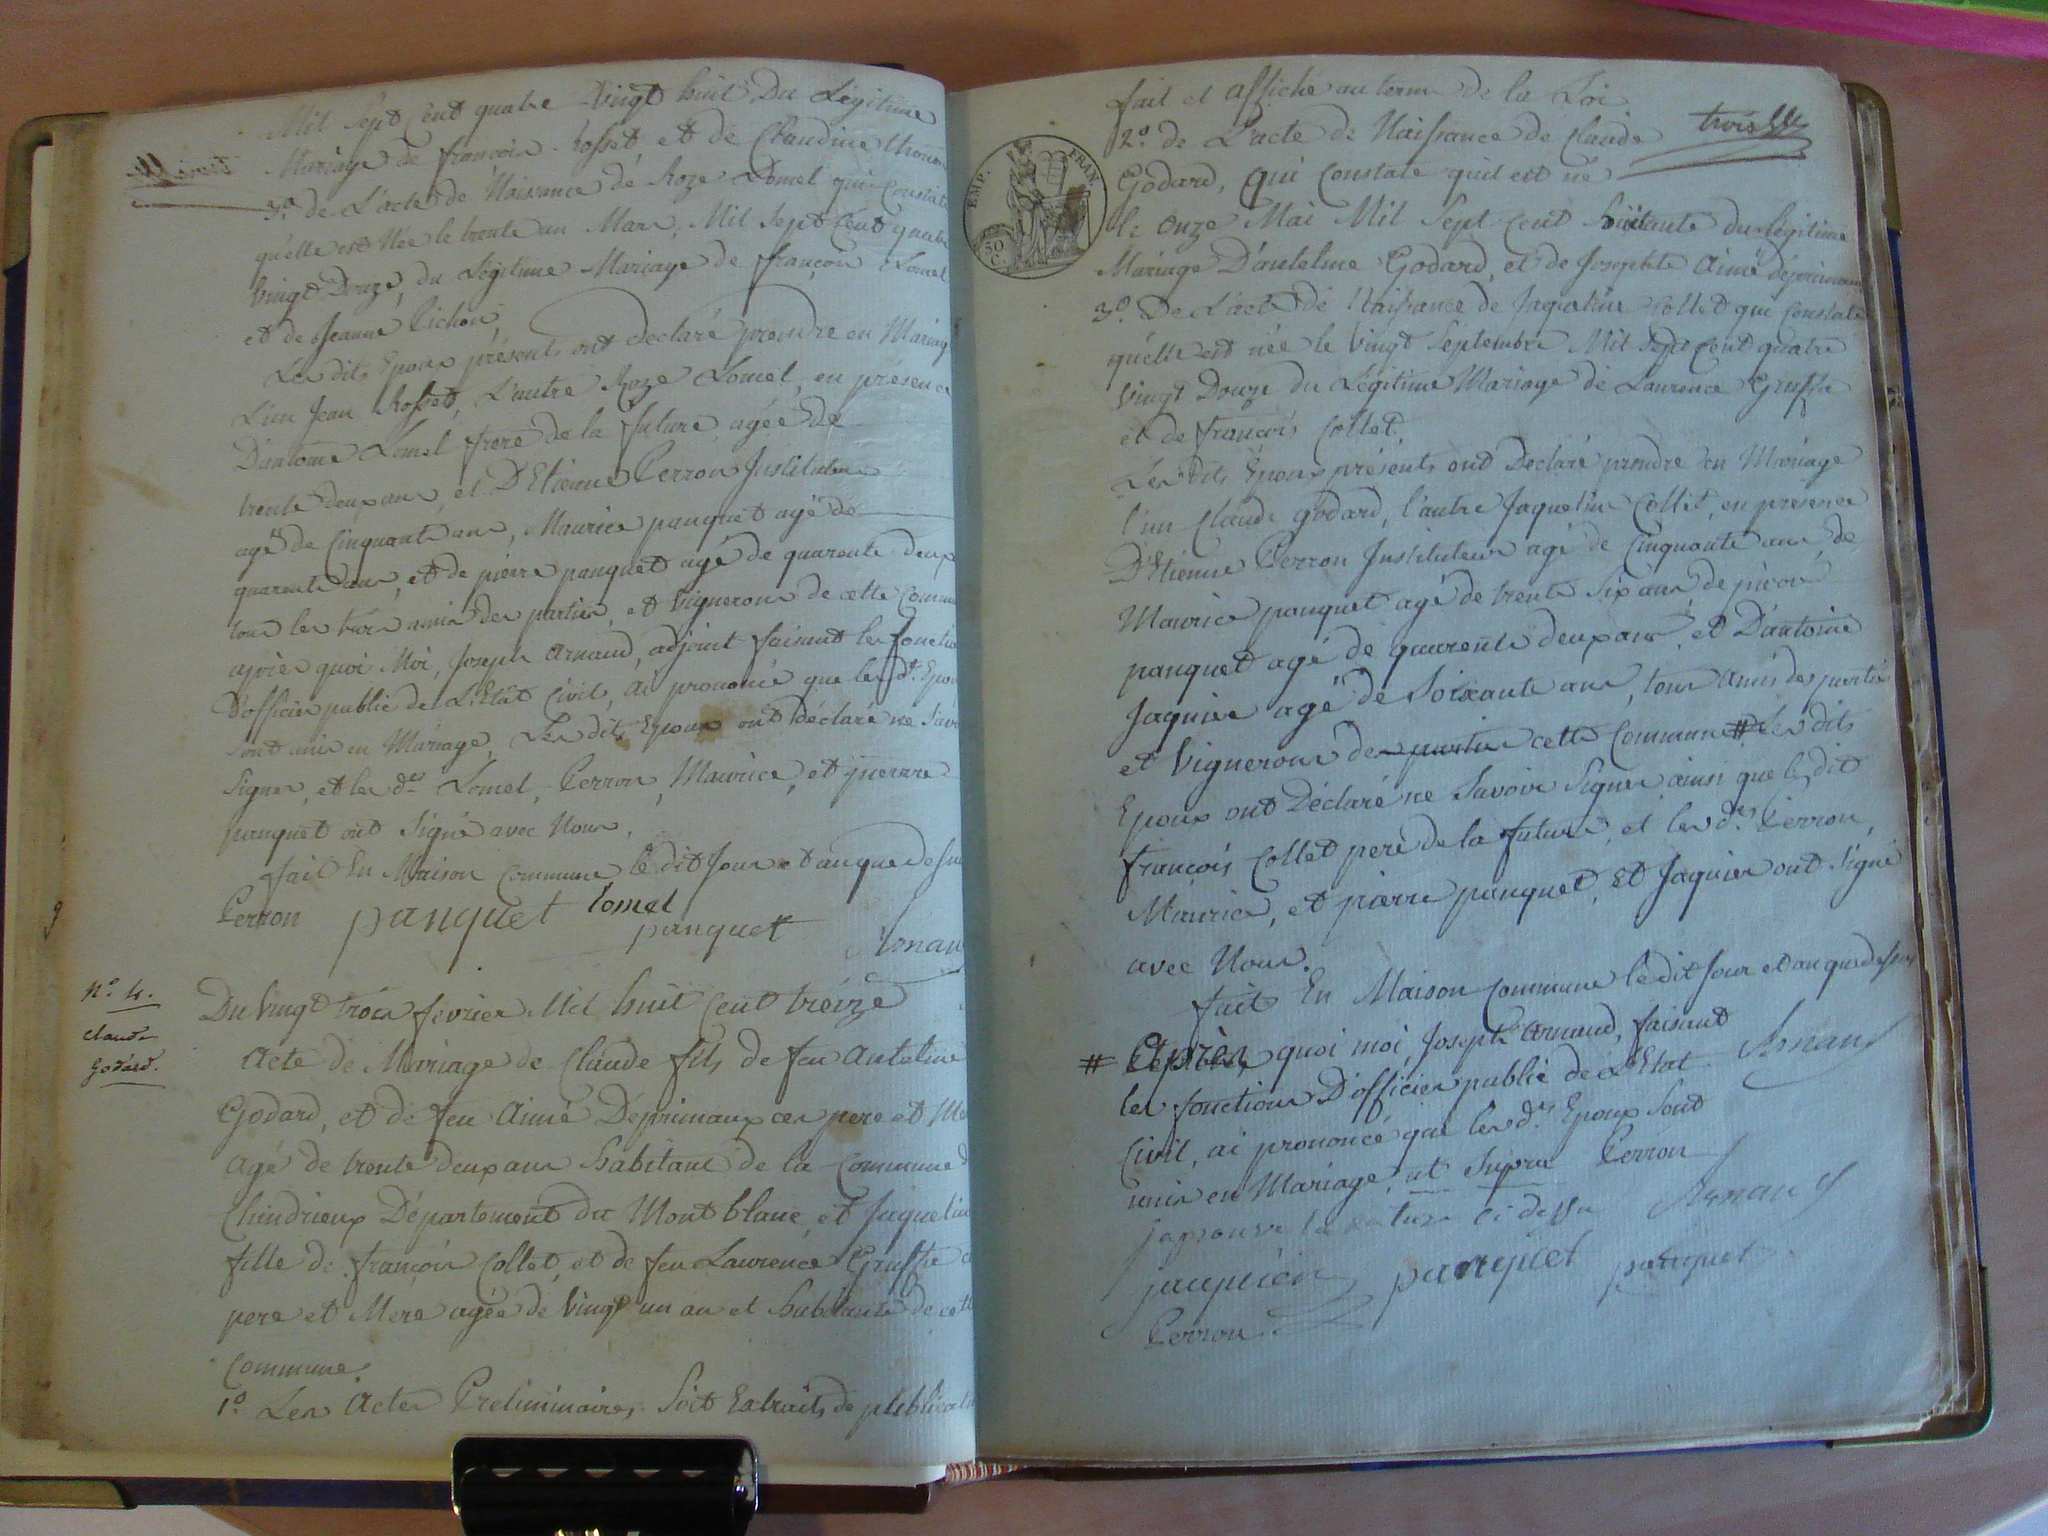 Mil Sept Cent quatre Vingt huit Du Légitime
Mariage de françois Rosset et de Claudine
3º. de L'acte de Naissance de Roze Lomel qui Constate
qu'elle est Née le trente un Mars, Mil Sept Cent quatre
Vingt Douze, du Légitime Mariage de françois Lomel
et de Jeanne Pichon,
Les dits Epoux présents ont declaré prendre en Mariage
L'un Jean Rosset, L'autre Roze Lomel, en présence
D'antoine Lomel frere de la future, agée de
trente deux ans, et D'Etienne Perron Instituteur
agé de Cinquante ans, Maurice panquet agé de
quarente ans, et de pierre panquet agé de quarente deux
tous les trois amis des parties, et Vignerons de cette Commune
après quoi Moi, Joseph Arnaud, adjoint faisant les fonctions
D'officier public de L'Etat Civil, ai prononcé que les dts. Epoux
sont unis en Mariage, Les dits Epoux ont déclaré ne Savoir
Signer, et les ds. Lomel, Perron, Maurice, et pierre
panquet ont Signé avec Nous.
fait En Maison Commune le dit Jour et an que dessus
Perron panquet Lomel
panquet
Arnau
Nº. 4.
Claude
Godard.
Du Vingt trois février Mil huit Cent treize
Acte de Mariage de Claude fils de feu Antelme
Godard, et de feu Aimé Déprimaux ces pere et Mere
Agé de trente deux ans habitant de la Commune de
Chindrieux Département du Mont blanc, et Jaqueline
fille de françois Collet, et de feu Laurence Gruffa ces
pere et Mere agée de Vingt un an et habitante de cette
Commune.
1º Les Actes Preliminaires, Soit Extraits de publications
trois
EMP. FRAN.
50 C.
fait et affiché au terme de la Loi
2º. de L'acte de Naissance de Claude
Godard, qui Constate quil est né
le Onze Mai Mil Sept Cent huitante du légitime
Mariage D'antelme Godard, et de Josephte Aimé déprimaux
3º. De L'acte dé Naissance de Jaqueline Collet qui Constate
qu'elle est née le Vingt Septembre Mil Sept Cent quatre
Vingt Douze du Légitime Mariage de Laurence Gruffa
et de françois Collet.
Les dits Epoux présents ont Déclaré prendre en Mariage
l'un Claude godard, l'autre Jaqueline Collet, en présence
D'Etienne Perron Instituteur agé de Cinquante ans, de
Maurice panquet agé de trente Six ans de pierre
panquet agé de quarente deux ans, et D'antoine
Jaquier agé de Soixante ans, tous Amis des parties
et Vignerons de partie cette Commune # Les dits
Epoux ont Déclaré ne Savoir Signer ainsi que le dit
françois Collet pere de la future, et les ds. Perron,
Maurice, et pierre panquet, et Jaquier ont Signé
avec Nous.
fait En Maison Commune le dit Jour et an que dessus
# Après quoi moi, Joseph Arnaud, faisant
les fonctions D'officier public de L'Etat
Arnaud
Civil, ai prononcé que les ds. Epoux sont
unis en Mariage, ut Supra Perron
japrouve la rature ci dessu Arnaud
jaquier panquet panquet
Perron